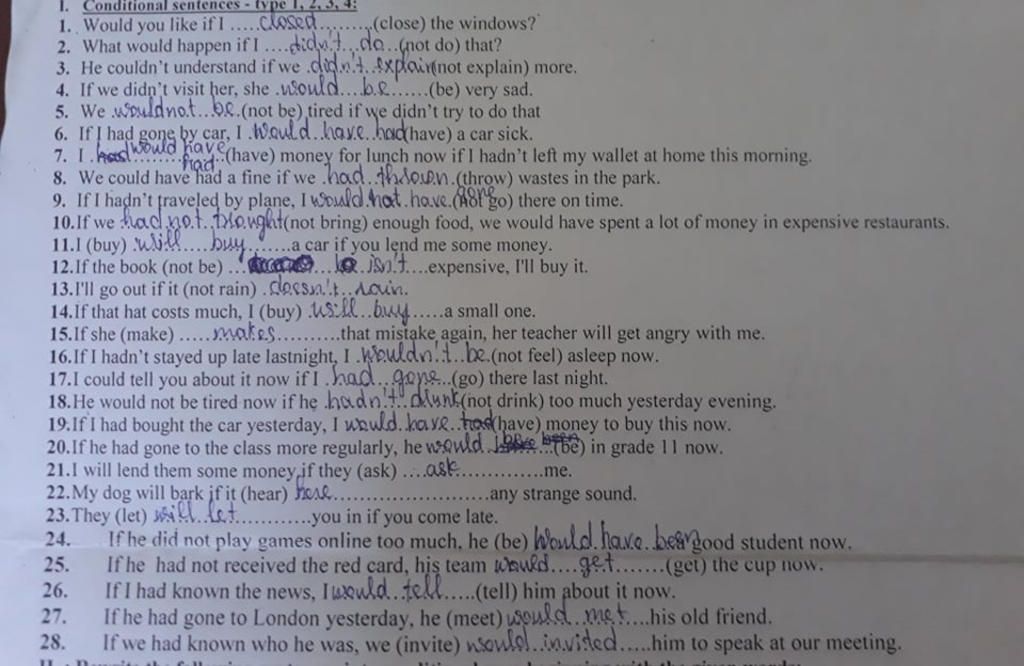 I. Conditional sentences - type 1, 2, 3, 4:
1. Would you like if I .....closed.......,(close) the windows?
2. What would happen if I ....didn't...do...(not do) that?
3. He couldn't understand if we .didn't..explain(not explain) more.
4. If we didn't visit her, she .would...be......(be) very sad.
5. We .wouldnot..be.(not be) tired if we didn't try to do that
6. If I had gone by car, I .would..have..had(have) a car sick.
7. I .would have had..(have) money for lunch now if I hadn't left my wallet at home this morning.
8. We could have had a fine if we .had..thrown.(throw) wastes in the park.
9. If I hadn't traveled by plane, I would.not.have.gone(not go) there on time.
10.If we had.not..brought(not bring) enough food, we would have spent a lot of money in expensive restaurants.
11.I (buy) .will....buy.......a car if you lend me some money.
12.If the book (not be) ... isn't....expensive, I'll buy it.
13.I'll go out if it (not rain) .doesn't..rain.
14.If that hat costs much, I (buy) .will..buy.....a small one.
15.If she (make) .....makes...........that mistake again, her teacher will get angry with me.
16.If I hadn't stayed up late lastnight, I .wouldn't..be.(not feel) asleep now.
17.I could tell you about it now if I .had..gone..(go) there last night.
18.He would not be tired now if he .hadn't..drunk(not drink) too much yesterday evening.
19.If I had bought the car yesterday, I would.have..had(have) money to buy this now.
20.If he had gone to the class more regularly, he would ...(be) in grade 11 now.
21.I will lend them some money if they (ask) ....ask..............me.
22.My dog will bark if it (hear) here.........................any strange sound.
23.They (let) will..let............you in if you come late.
24. If he did not play games online too much, he (be) would.have.been good student now.
25. If he had not received the red card, his team would....get.......(get) the cup now.
26. If I had known the news, I would..tell.....(tell) him about it now.
27. If he had gone to London yesterday, he (meet) would..met....his old friend.
28. If we had known who he was, we (invite) would.invited.....him to speak at our meeting.